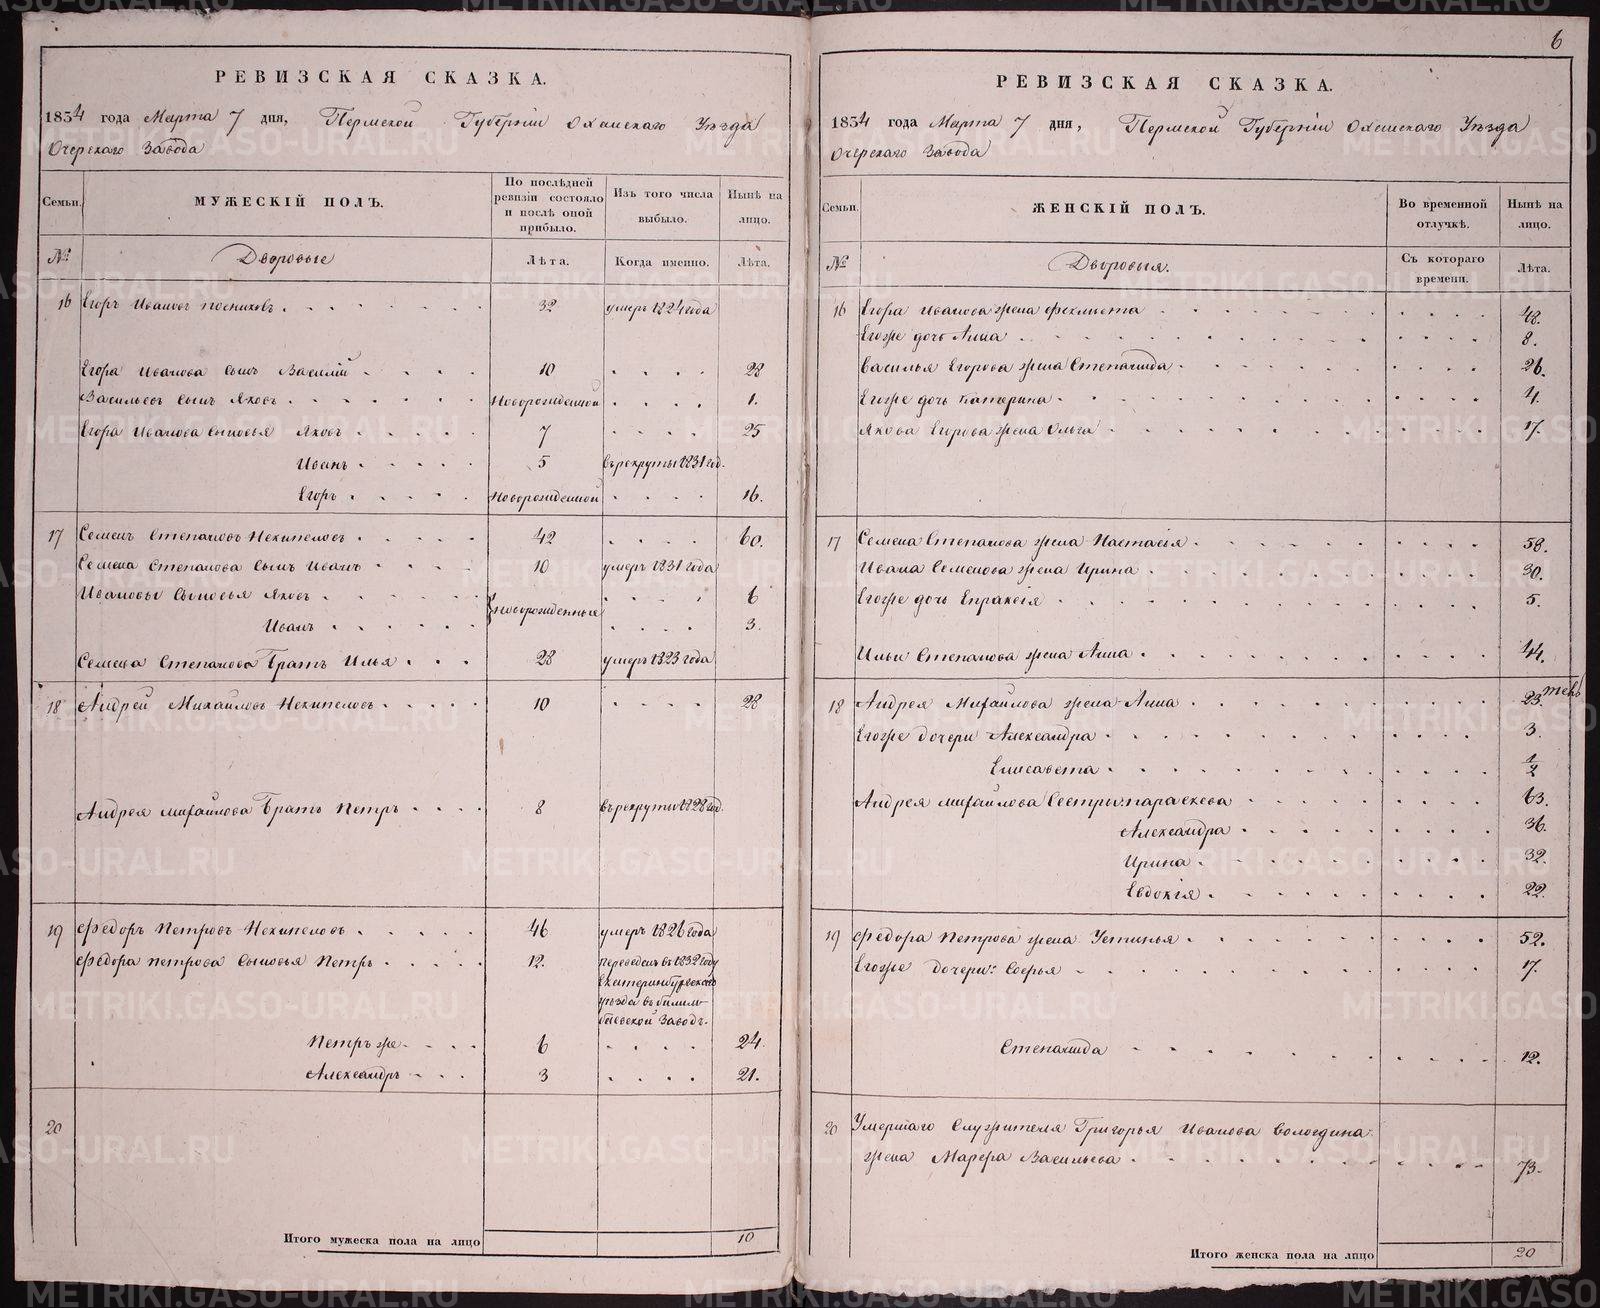 6
РЕВИЗСКАЯ СКАЗКА.
1834 года Марта 7 дня, Пермской Губерніи Оханскаго Уѣзда
Очерскаго Завода
Семьи.
МУЖЕСКІЙ ПОЛЪ.
По послѣдней ревизіи состояло и послѣ оной прибыло.
Изъ того числа выбыло.
Нынѣ на лицо.
№ Дворовые Лѣта. Когда именно. Лѣта.
16 Егоръ Ивановъ 32 умеръ 1824 года
Егора Иванова сынъ Василій 10 28
Васильевъ сынъ Яковъ Новорожденной 1.
Егора Иванова сыновья Яковъ 7 25
Иванъ 5 въ рекруты 1831 год.
Егоръ Новорожденной 16.
17 Семенъ Степановъ Некипеловъ 42 60.
Семена Степанова сынъ Иванъ 10 умеръ 1831 года
Ивановы сыновья Яковъ 6
Новорожденные
Иванъ 3.
Семена Степанова Братъ Илья 28 умеръ 1823 года
18 Андрей Михайловъ Некипеловъ 10 28
Андрея Михайлова Братъ Петръ 8 въ рекруты 1828 год.
19 Федоръ Петровъ Некипеловъ 46 умеръ 1826 года
Федора Петрова сыновья Петръ 12. переведенъ въ 1832 году
Екатеринбургскаго
уѣзда въ Билим-
баевской Заводъ.
Петръ же 6 24.
Александръ 3 21.
20
Итого мужеска пола на лицо 10
РЕВИЗСКАЯ СКАЗКА.
1834 года Марта 7 дня, Пермской Губерніи Оханскаго Уѣзда
Очерскаго Завода
Семьи.
ЖЕНСКІЙ ПОЛЪ.
Во временной отлучкѣ.
Нынѣ на лицо.
№ Дворовыя. Съ котораго времени. Лѣта.
16 Егора Иванова жена Феклиста 48.
Егоже дочь Анна 8.
Василья Егорова жена Степанида 26.
Егоже дочь Катерина 4.
Якова Егорова жена Ольга 17.
17 Семена Степанова жена Настасія 58.
Ивана Семенова жена Ирина 30.
Егоже дочь Евпраксія 5.
Ильи Степанова жена Анна 44.
18 Андрея Михайлова жена Анна 23.
Егоже дочери Александра 3.
Елисавета 1/2
Андрея Михайлова Сестры: Параскева 63.
Александра 36.
Ирина 32.
Евдокія 22.
19 Федора Петрова жена Устинья 52.
Егоже дочери: Софья 17.
Степанида 12.
20 Умершаго Служителя Григорья Иванова Вологдина
жена Марфа Васильева 73.
Итого женска пола на лицо 20
METRIKI.GASO-URAL.RU